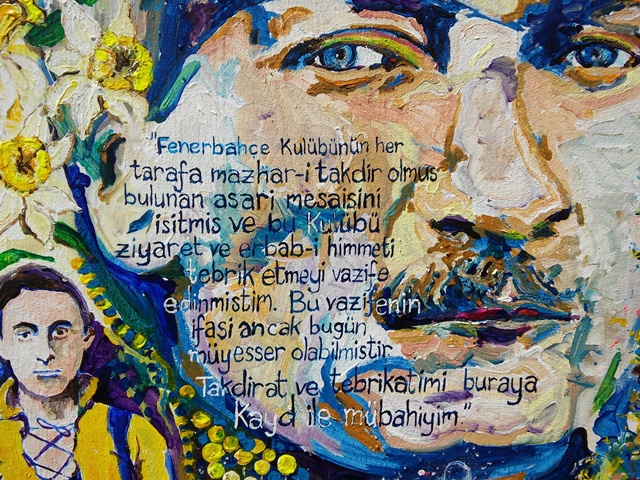 "Fenerbahce Kulübünün her
tarafa mazhar-i takdir olmus
bulunan asari mesaisini
isitmis ve bu Kulübü
ziyaret ve erbab-i himmeti
tebrik etmeyi vazife
edinmistim. Bu vazifenin
ifasi ancak bugün
müyesser olabilmistir
Takdirat ve tebrikatimi buraya
Kayd ile mübahiyim."